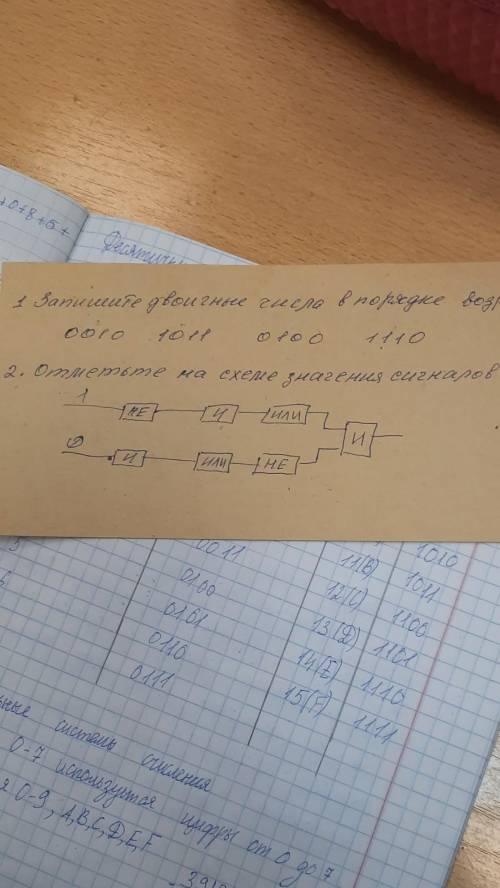 +0+8+5+
1 Запишите двоичные числа в порядке
0010 1011 0100 1110
2. Отметьте на схеме значения сигналов
1
НЕ И ИЛИ
И
0
И ИЛИ НЕ
0011 11(B) 1010
0100 12(C) 1011
0101 13(D) 1100
0110 14(E) 1101
0111 15(F) 1110
1111
системы счисления
0-7 используются цифры от 0 до 7
0-9, A, B, C, D, E, F